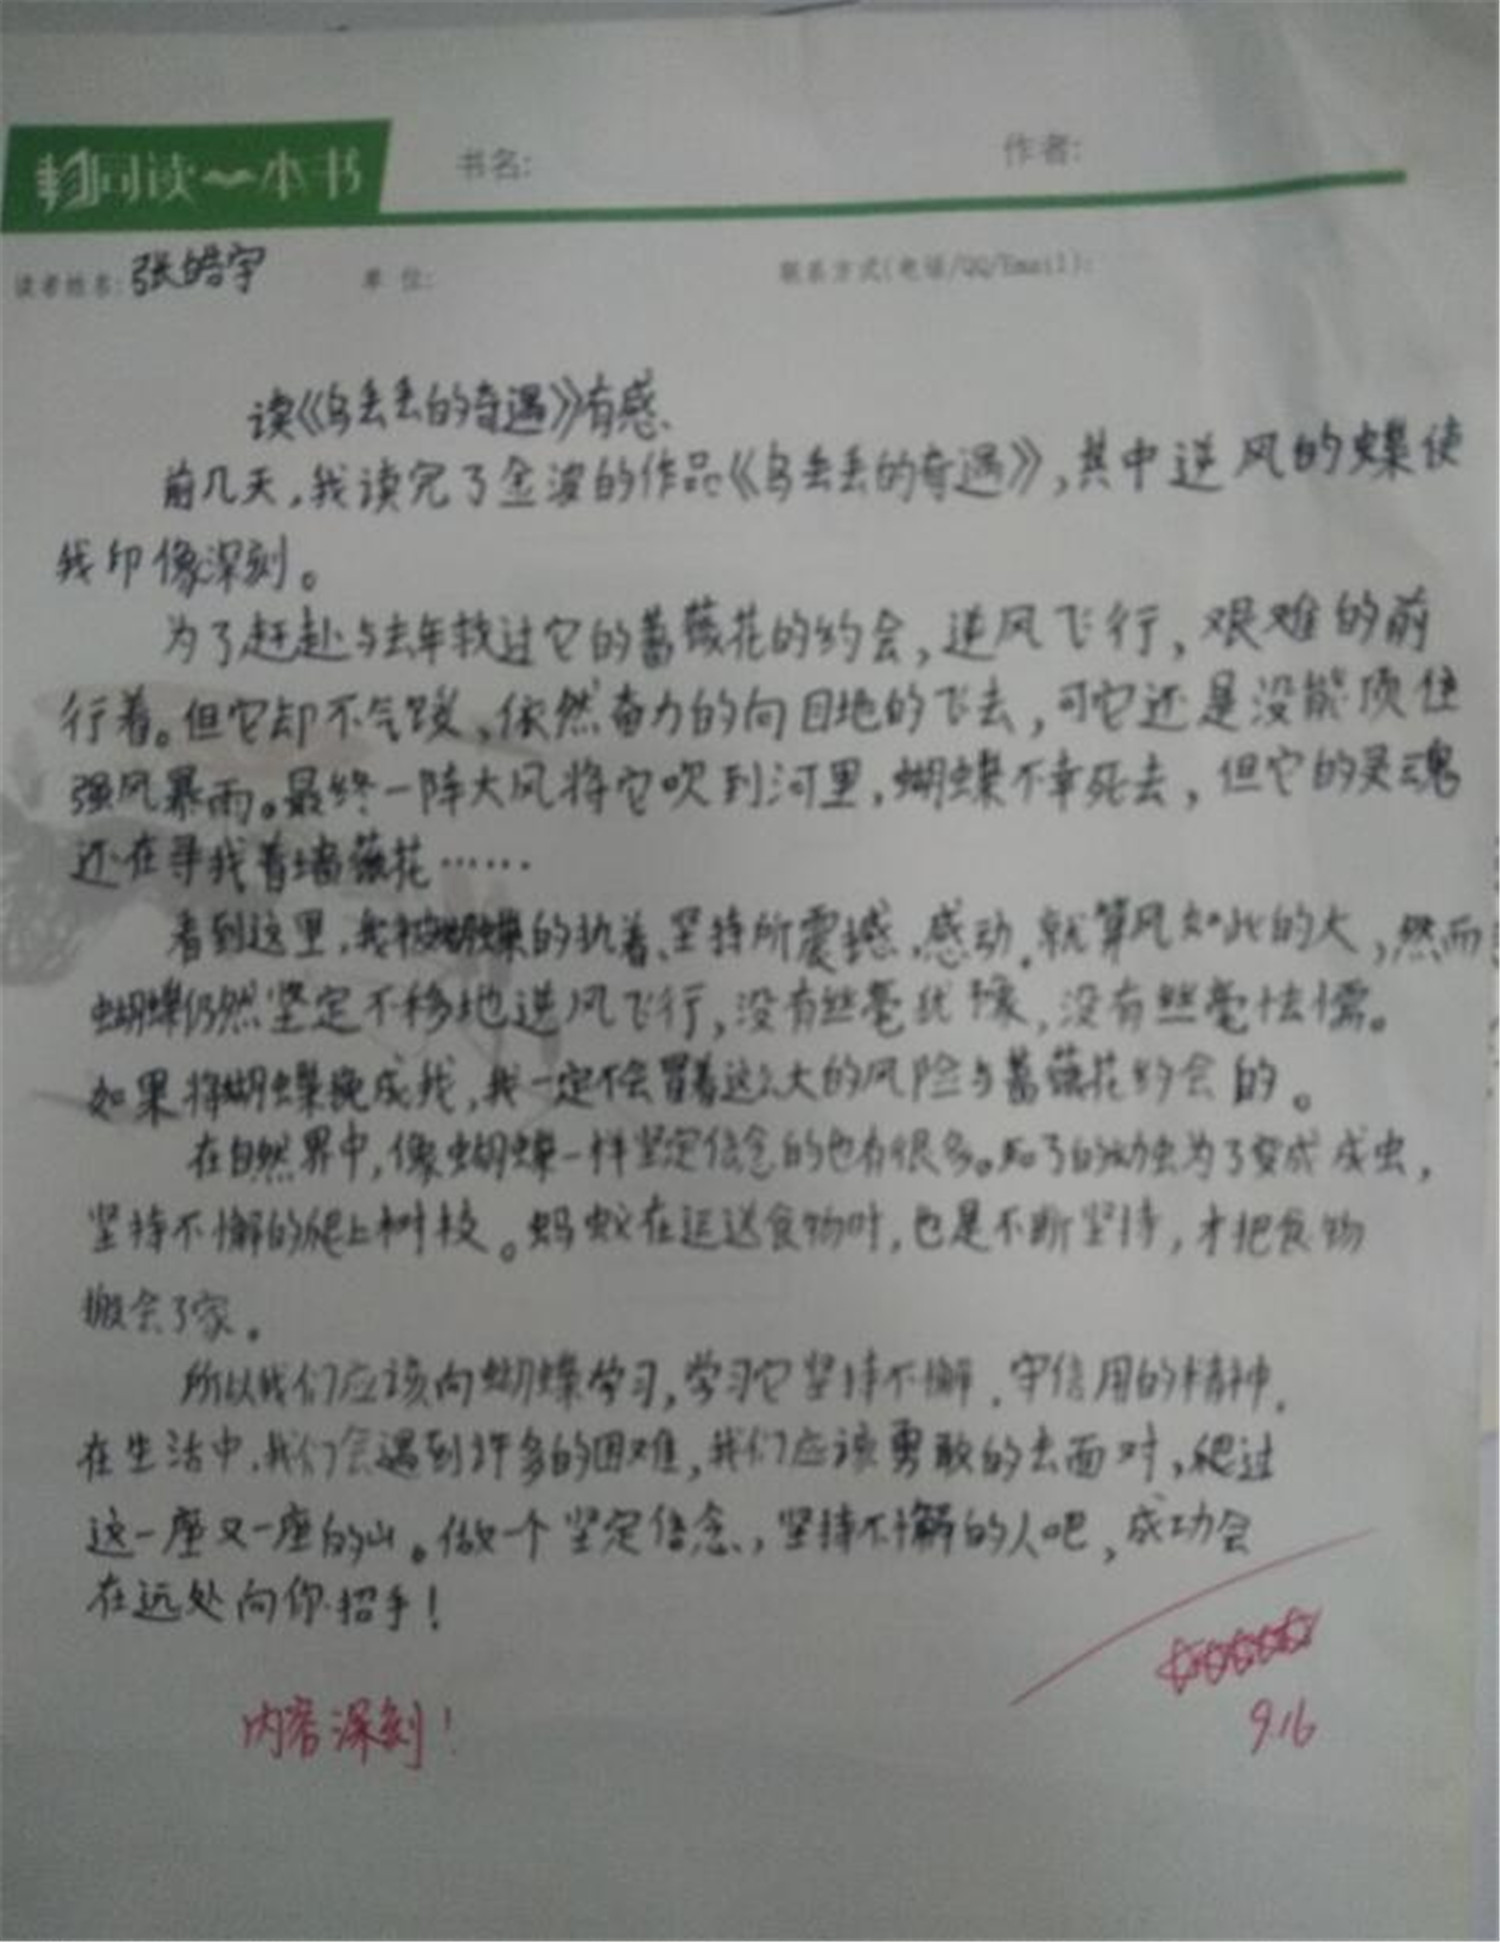 同读一本书 书名: 作者:
读者姓名: 张皓宇 单 位: 联系方式(电话/QQ/Email):
读《乌丢丢的奇遇》有感
前几天,我读完了金波的作品《乌丢丢的奇遇》,其中逆风的蝶使
我印像深刻。
为了赶赴与去年救过它的蔷薇花的约会,逆风飞行,艰难的前
行着。但它却不气馁,依然奋力的向目地的飞去,可它还是没能顶住
强风暴雨。最终一阵大风将它吹到河里,蝴蝶不幸死去,但它的灵魂
还在寻找着墙薇花……
看到这里,我被蝴蝶的执着、坚持所震撼,感动。就算风如此的大,然而
蝴蝶仍然坚定不移地逆风飞行,没有丝毫犹豫,没有丝毫怯懦。
如果将蝴蝶换成我,我一定不会冒着这么大的风险与蔷薇花约会的。
在自然界中,像蝴蝶一样坚定信念的也有很多。知了的幼虫为了变成成虫,
坚持不懈的爬上树枝。蚂蚁在运送食物时,也是不断坚持,才把食物
搬会了家。
所以我们应该向蝴蝶学习,学习它坚持不懈、守信用的精神。
在生活中,我们会遇到许多的困难,我们应该勇敢的去面对,爬过
这一座又一座的山。做一个坚定信念,坚持不懈的人吧,成功会
在远处向你招手!
内容深刻!
9.16